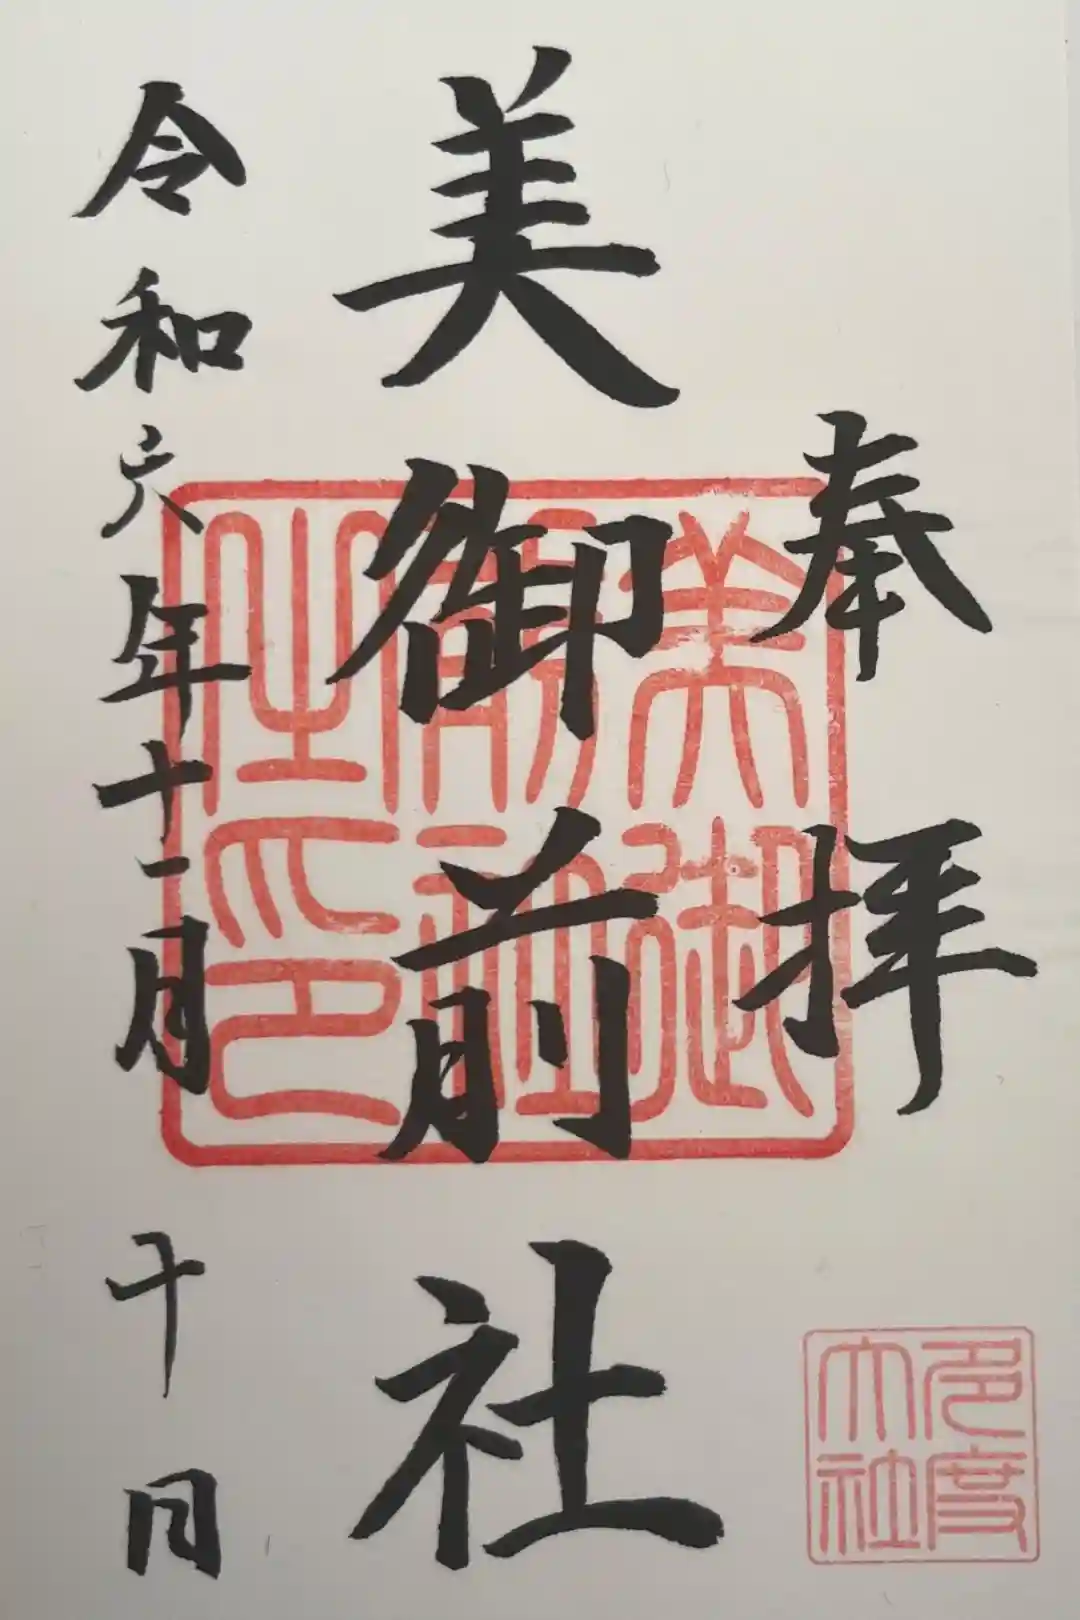 奉拝
美御前社
令和六年十二月十日
美御
前社
之印
多度
大社